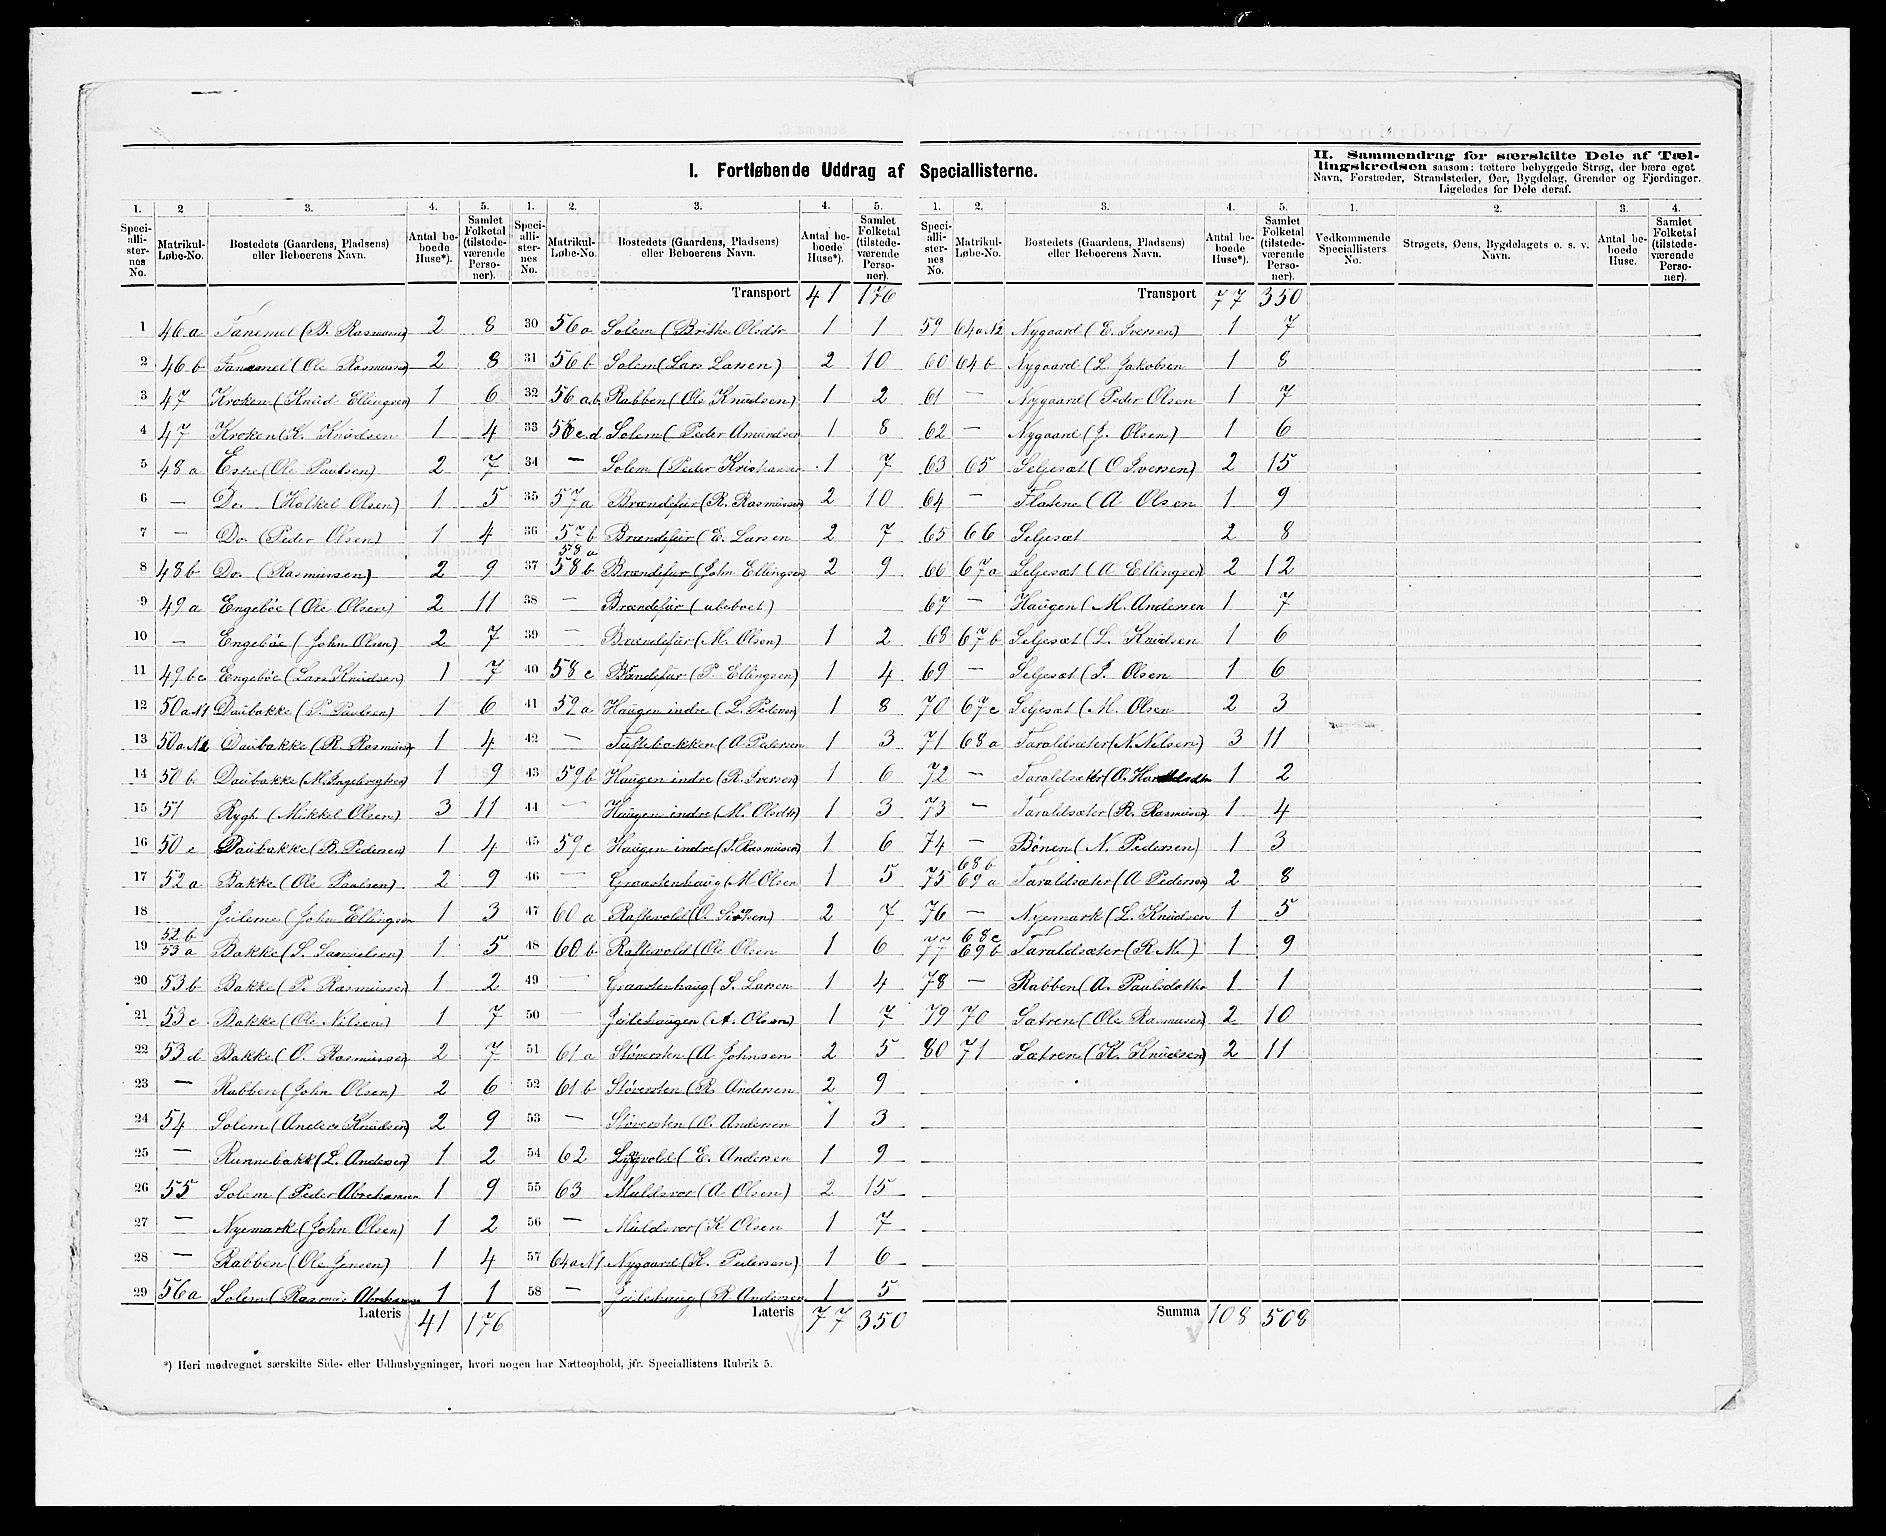 I. Fortløbende Uddrag af Speciallisterne.
II. Sammendrag for særskilte Dele af Tæl-
lingskredsen saasom: tættere bebyggede Strøg, der bære eget
Navn, Forstæder, Strandsteder, Øer, Bygdelag, Grender og Fjerdinger.
Ligeledes for Dele deraf.
1. 2 3. 4. 5.
Speciallisternes No. Matrikul-Løbe-No. Bostedets (Gaardens, Pladsens) eller Beboerens Navn. Antal beboede Huse*). Samlet Folketal (tilstedeværende Personer).
1 46a Tanemel (B. Rasmusen) 2 8
2 46b Tanemel (Ole Rasmusen) 2 8
3 47 Kroken (Knud Ellingsen) 1 6
4 47 Kroken (K. Knudsen 1 4
5 48a Espe (Ole Paulsen) 2 7
6 — Do. (Holkel Olsen) 1 5
7 — Do. (Peder Olsen) 1 4
8 48b Do. (Rasmussen) 2 9
9 49a Engebøe (Ole Olsen) 2 11
10 — Engebøe (John Olsen) 2 7
11 49bc Engebøe (Lars Knudsen) 1 7
12 50aN1 Daubakke (P. Paulsen) 1 6
13 50aN2 Daubakke (R. Rasmusen 1 4
14 50b Daubakke (M. Ingebrigtsen) 1 9
15 51 Rygh (Mikkel Olsen) 3 11
16 50c Daubakke (B. Pedersen) 1 4
17 52a Bakke (Ole Paulsen) 2 9
18 Jeilerne (John Ellingsen 1 3
19 52b 53a Bakke (S. Samuelsen) 1 5
20 53b Bakke (P. Rasmussen) 1 2
21 53c Bakke (Ole Nilsen) 1 7
22 53d Bakke (O. Rasmussen 2 7
23 — Rabben (John Olsen) 2 6
24 54 Solem (Anders Knudsen) 2 9
25 — Runnebakk (L. Andersen) 1 2
26 55 Solem (Peder Abrahamsen 1 9
27 — Nyemark (John Olsen) 1 2
28 — Rabben (Ole Jensen) 1 4
29 56a Solem (Rasmus Abrahamsen 1 1
Lateris 41 176
1. 2. 3. 4. 5.
Speciallisternes No. Matrikul-Løbe-No. Bostedets (Gaardens, Pladsens) eller Beboerens Navn. Antal beboede Huse*). Samlet Folketal (tilstedeværende Personer).
Transport 41 176
30 56a Solem (Brithe Olsdtr 1 1
31 56b Solem (Lars Larsen) 2 10
32 56a,b Rabben (Ole Knudsen) 1 2
33 56c.d Solem (Peder Amundsen 1 8
34 — Solem (Peder Kristiansen 1 7
35 57a Brændefur (R. Rasmussen) 2 10
36 57b Brændefur (E. Larsen 2 7
37 58a 58b Brændefur (John Ellingsen 2 9
38 — Brændefur (ubeboet)
39 — Brændefur (M. Olsen) 1 2
40 58c Brændefur (P. Ellingsen) 1 4
41 59a Haugen indre (L. Pedersen) 1 8
42 — Tuftebakken (A Pedersen 1 3
43 59b Haugen indre (R. Iversen) 1 6
44 — Haugen indre (M. Olsdtr) 1 3
45 59c Haugen indre (S. Rasmusen) 1 6
46 — Graastenhaug (M Olsen 1 5
47 60a Raftevold (O. 2 7
48 60b Raftevold (Ole Olsen 1 6
49 — Graastenhaug (S. Larsen 1 4
50 — Jeilehaugen (A. Olsen) 1 7
51 61a Støversten (A Johnsen 2 5
52 61b Støversten (R. Andersen 2 9
53 — Støversten (O. Andersen 1 3
54 62 Lygvold (E. Andersen 1 9
55 63 Muldsvor (A. Olsen) 2 15
56 — Muldsvor (K Olsen 1 7
57 64aN1 Nygaard (K. Pedersen) 1 6
58 — Jeilehaug (R Andersen 1 5
Lateris 77 350
1. 2. 3. 4. 5.
Speciallisternes No. Matrikul-Løbe-No. Bostedets (Gaardens, Pladsens) eller Beboerens Navn. Antal beboede Huse*). Samlet Folketal (tilstedeværende Personer).
Transport 77 350
59 64aN2 Nygaard (E. Iversen) 1 7
60 64b Nygaard (L. Jakobsen 1 8
61 — Nygaard (Peder Olsen 1 7
62 — Nygaard (J. Olsen) 1 6
63 65 Seljesæt (O Iversen) 2 15
64 — Flatene (A Olsen 1 9
65 66 Seljesæt 2 8
66 67a Seljesæt (A Ellingsen) 2 12
67 — Haugen (M. Andersen 1 7
68 67b Seljesæt (L. Knudsen 1 6
69 — Seljesæt (P. Olsen 1 6
70 67c Seljesæt (M. Olsen 2 3
71 68a Taraldsæter (N. Nilsen) 3 11
72 — Taraldsæter (O. 1 2
73 — Taraldsæter (R. Rasmusen) 1 4
74 — Bønen (N. Pedersen) 1 3
75 68b 69a Taraldsæter (A Pedersen) 2 8
76 — Nyemark (L. Knudsen 1 5
77 68c 69b Taraldsæter (R N.) 1 9
78 — Rabben (A. Paulsdatter 1 1
79 70 Sætren (Ole Rasmusen) 2 10
80 71 Sætren (K. Knudsen) 2 11
Summa 108 508
1. 2. 3. 4.
Vedkommende Speciallisters No. Strøgets, Øens, Bygdelagets o. s. v. Navn. Antal beboede Huse. Samlet Folketal (tilstedeværende Personer).
*) Heri medregnet særskilte Side- eller Udhusbygninger, hvori nogen har Natteophold, jfr. Speciallistens Rubrik 5.